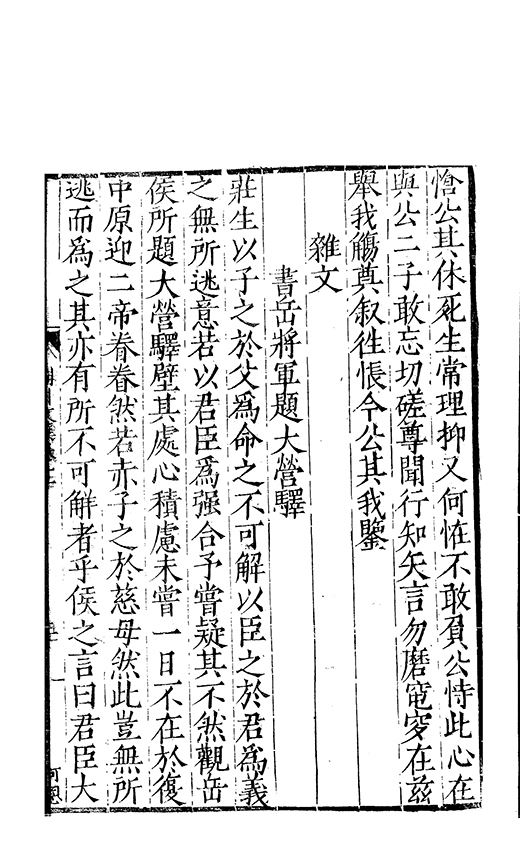 愴公其休死生常理抑又何恠不敢負公恃此心在
與公二子敢忘切磋尊聞行知矢言勿磨窀穸在兹
舉我觴奠叙徃悵今公其我鑒
雜文
書岳將軍題大營驛
莊生以子之於父為命之不可解以臣之於君為義
之無所逃意若以君臣為强合予嘗疑其不然觀岳
侯所題大營驛壁其處心積慮未嘗一日不在於復
中原迎二帝眷眷然若赤子之於慈母然此豈無所
逃而為之其亦有所不可解者乎侯之言曰君臣大